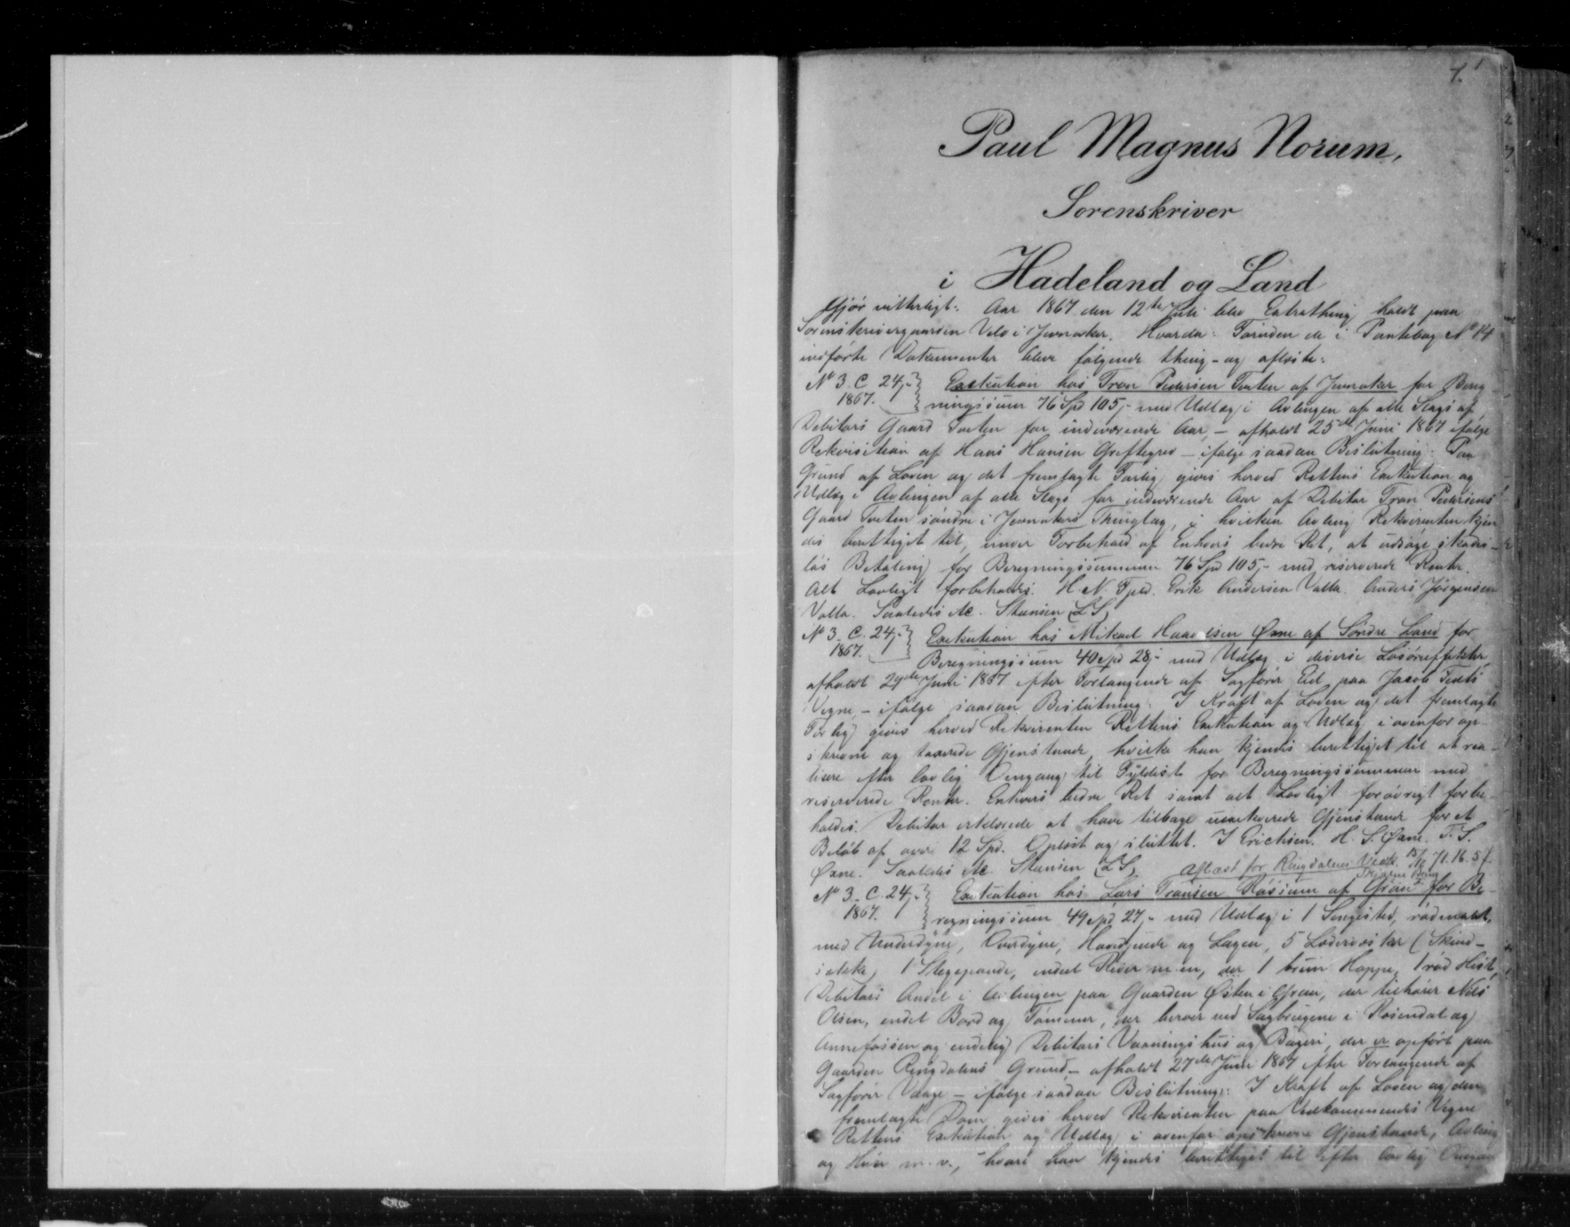 1.
Paul Magnus Norum,
Sorenskriver
i Hadeland og Land
Gjør vitterligt: Aar 1867 den 12te Juli blev Extrathing holdt paa
Sorenskrivergaarden Velo i Jevnaker. Hvorda: Foruden de i Pantebog No 14
indførte Dokumenter bleve følgende thing- og afløste:
No 3. C. 24,- Exekution hos Tron Pedersen Toeten af Jevnaker for Bereg-
1867. ningssum 76 Spd 105,- med Udlæg i Avlingen af alle Slags af
Debitors Gaard Toeten for indeværende Aar, - afholdt 25de Juni 1867 ifølge
Rekvisition af Hans Hansen Greftegrev - ifølge saadan Beslutning: Paa
Grund af Loven og det fremlagte Forlig gives herved Rettens Exekution og
Udlæg i Avlingen af alle Slags for indeværende Aar af Debitor Tron Pedersens
Gaard Toeten søndre i Jevnakers Thinglag, i hvilken Avling Rekvirenten kjen
des berettiget til, under Forbehold af Enhvers bedre Ret, at udsøge skades-
løs Betaling for Beregningssummen 76 Spd 105,- med reserverede Renter.
Alt Lovligt forbeholdes. H. N. Erik Andersen Valla. Anders Jørgensen
Valla. Saaledes &c. Stansen (LS)
No 3. C. 24,- Exekution hos Mikael Haagensen Øsne af Søndre Land for
1867. Beregningssum 40 Spd 28,- med Udlæg i diverse Løsøreffekter,
afholdt 29de Juni 1867 efter Forlangende af Sagfører Eid paa Jacob
Vegne - ifølge saadan Beslutning: I Kraft af Loven og det fremlagte
Forlig gives herved Rekvirenten Rettens Exekution og Udlæg i ovenfor op-
skrevne og taxerede Gjenstande, hvilke han kjendes berettiget til at rea-
lisere efter lovlig Omgang til Fyldest for Beregningssummen med
reserverede Renter. Enhvers bedre Ret samt alt Lovligt forøvrigt forbe-
holdes. Debitor erklærede at have tilbage uexekverede Gjenstande for et
Beløb af over 12 Spd. Oplæst og sluttet. I Erichsen. H. S. Øsne. T. S.
Øsne. Saaledes &c Stansen (LS) aflæst for Ringdalens Vedk. 71.16.57.
No 3. C. 24,- Exekution hos Lars Transen Røssum af Gran for Be-
1867. regningssum 49 Spd 27,- med Udlæg i 1 Sengested, rødmalet,
med Underdyne, Overdyne, Hovedpude og Lagen, 5 (Skind-
1 Stegepande, endel 1 brun Hoppe, 1 rød Hest,
Debitors Andel i Avlingen paa Gaarden Østen i Gran, der tilhører Nels
Olsen, endel Bord og Tømmer, der beroer ved Sagbrugene i Rosendal og
Annefossen og endelig Debitors Vaaningshus og Bageri, der er opført paa
Gaarden Ringdalens Grund - afholdt 27de Juni 1867 efter Forlangende af
Sagfører - ifølge saadan Beslutning: I Kraft af Loven og den
fremlagte Dom gives herved Rekvirenten paa Vedkommendes Vegne
Rettens Exekution og Udlæg i ovenfor opskrevne Gjenstande, Avling
og Huse m. v., hvori han kjendes berettiget til efter lovlig Omgang